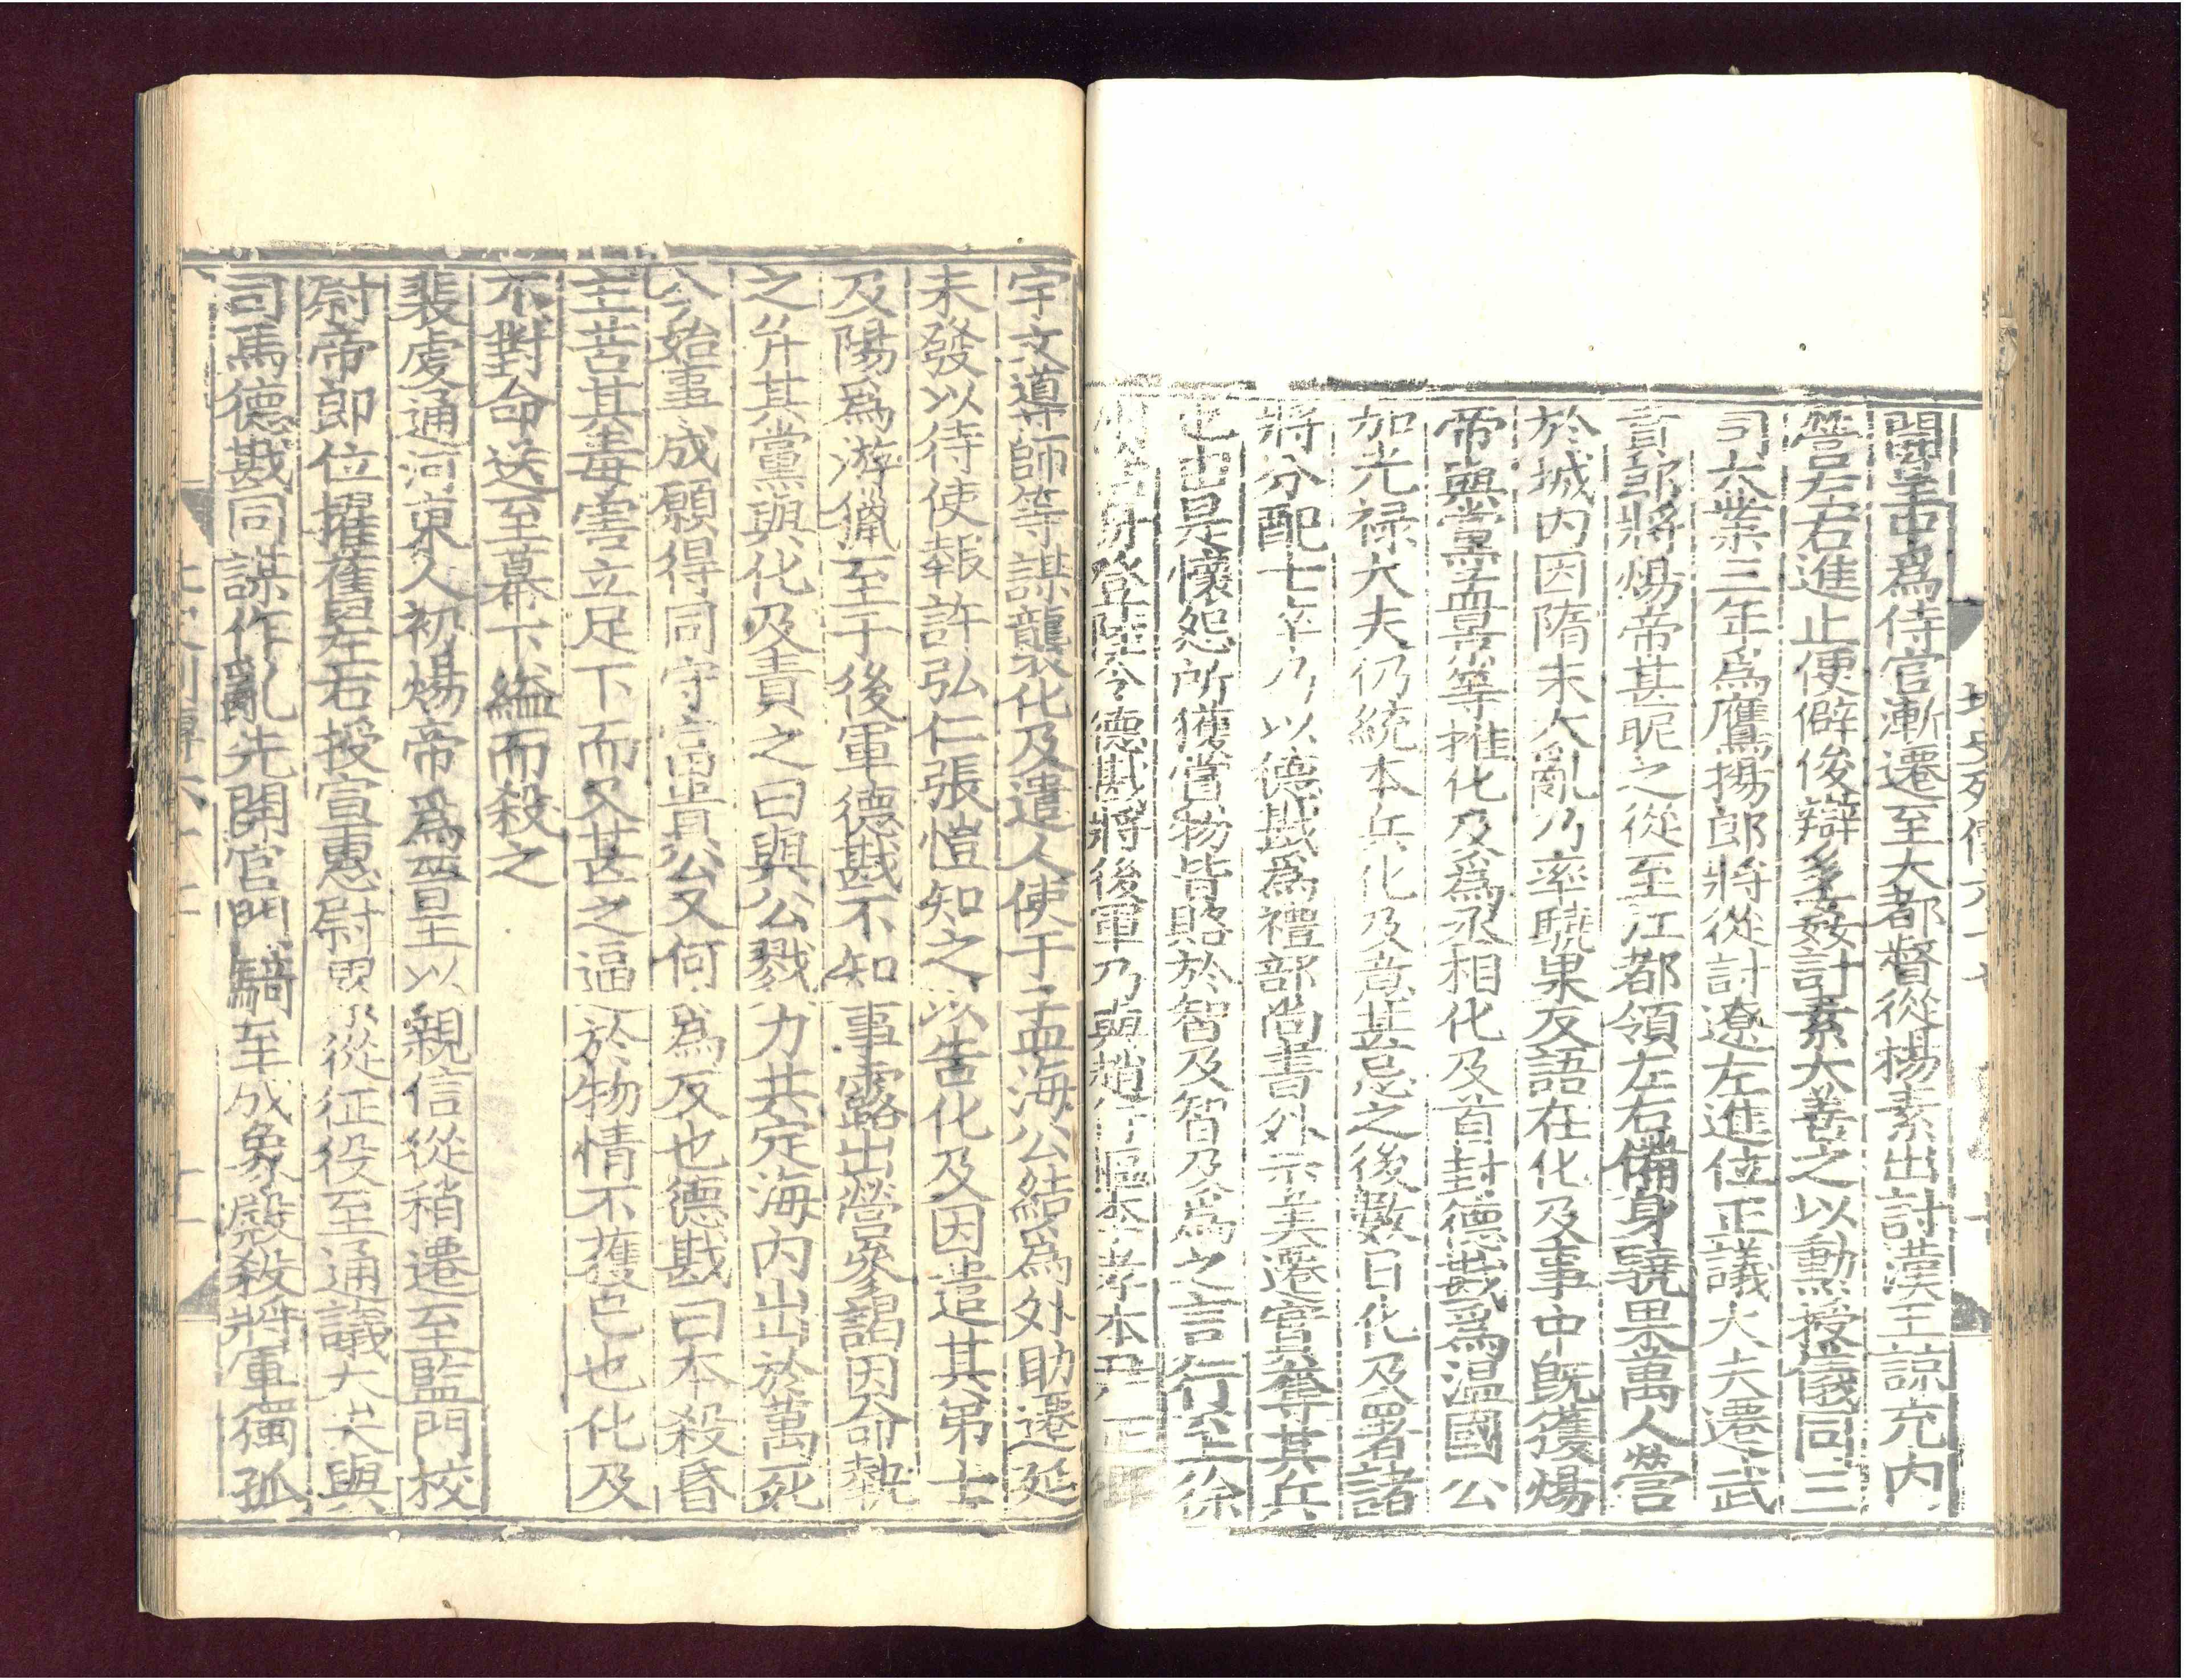 北史列傳六十七
開皇中爲侍官漸遷至大都督從楊素出討漢王諒充内
營左右進止便僻俊辯多姦計素大善之以勳授儀同三
司大業三年爲鷹揚郎將從討遼左進位正議大夫遷武
賁郎將煬帝甚昵之從至江都領左右備身驍果萬人營
於城内因隋末大亂乃率驍果反語在化及事中旣獲煬
帝與黨孟景等推化及爲丞相化及首封德戡爲溫國公
加光禄大夫仍統本兵化及意甚忌之後數日化及署諸
將分配士卒乃以德戡爲禮部尚書外示美遷實奪其兵
也由是懷怨所獲賞物皆賂於智及智及爲之言行至徐
舟登陸令德戡將後軍乃與趙行樞李孝本尹正卿
宇文導師等謀襲化及遣人使于孟海公結爲外助遷延
未發以待使報許弘仁張愷知之以告化及因遣其弟士
及陽爲游獵至于後軍德戡不知事露出營參謁因命執
之并其黨與化及責之曰與公戮力共定海内出於萬死
今始事成願得同守富貴公又何爲反也德戡曰本殺昏
主苦其毒害立足下而又甚之逼於物情不獲已也化及
不對命送至幕下縊而殺之
裴虔通河東人初煬帝爲晉王以親信從稍遷至監門校
尉帝即位擢舊左右授宣惠尉累從征役至通議大夫與
司馬德戡同謀作亂先開宮門騎至成象殿殺將軍獨孤
北史列傳六十七 十一